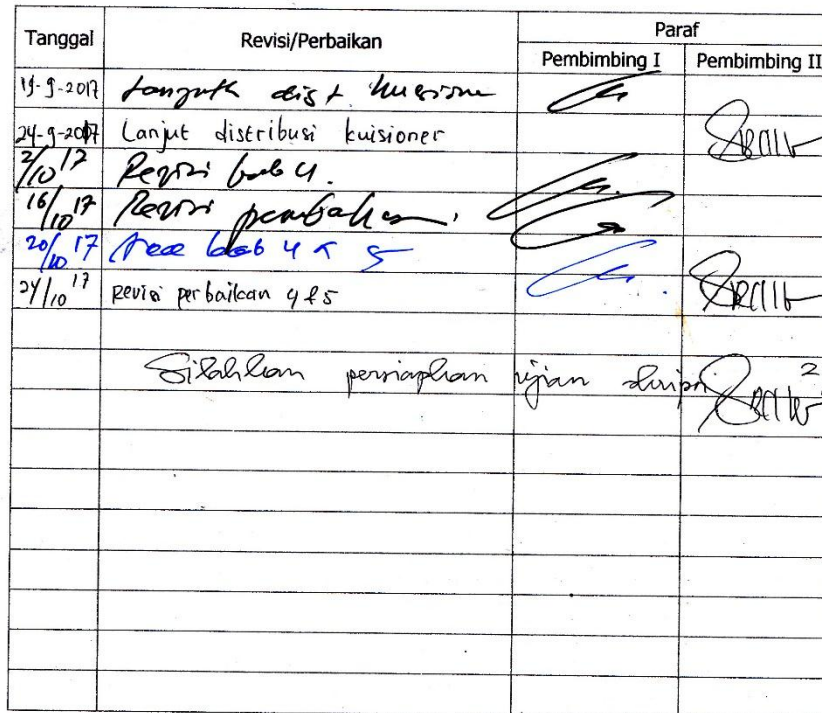 Tanggal Revisi/Perbaikan Paraf
Pembimbing I Pembimbing II
19-9-2017
24-9-2017 Lanjut distribusi kuisioner
2/10 17 Revisi bab 4.
16/10 17 Revisi pembahasan.
20/10 17 bab 4 5
24/10 17 Revisi perbaikan 4 & 5
Silahkan persiapkan ujian skripsi
2